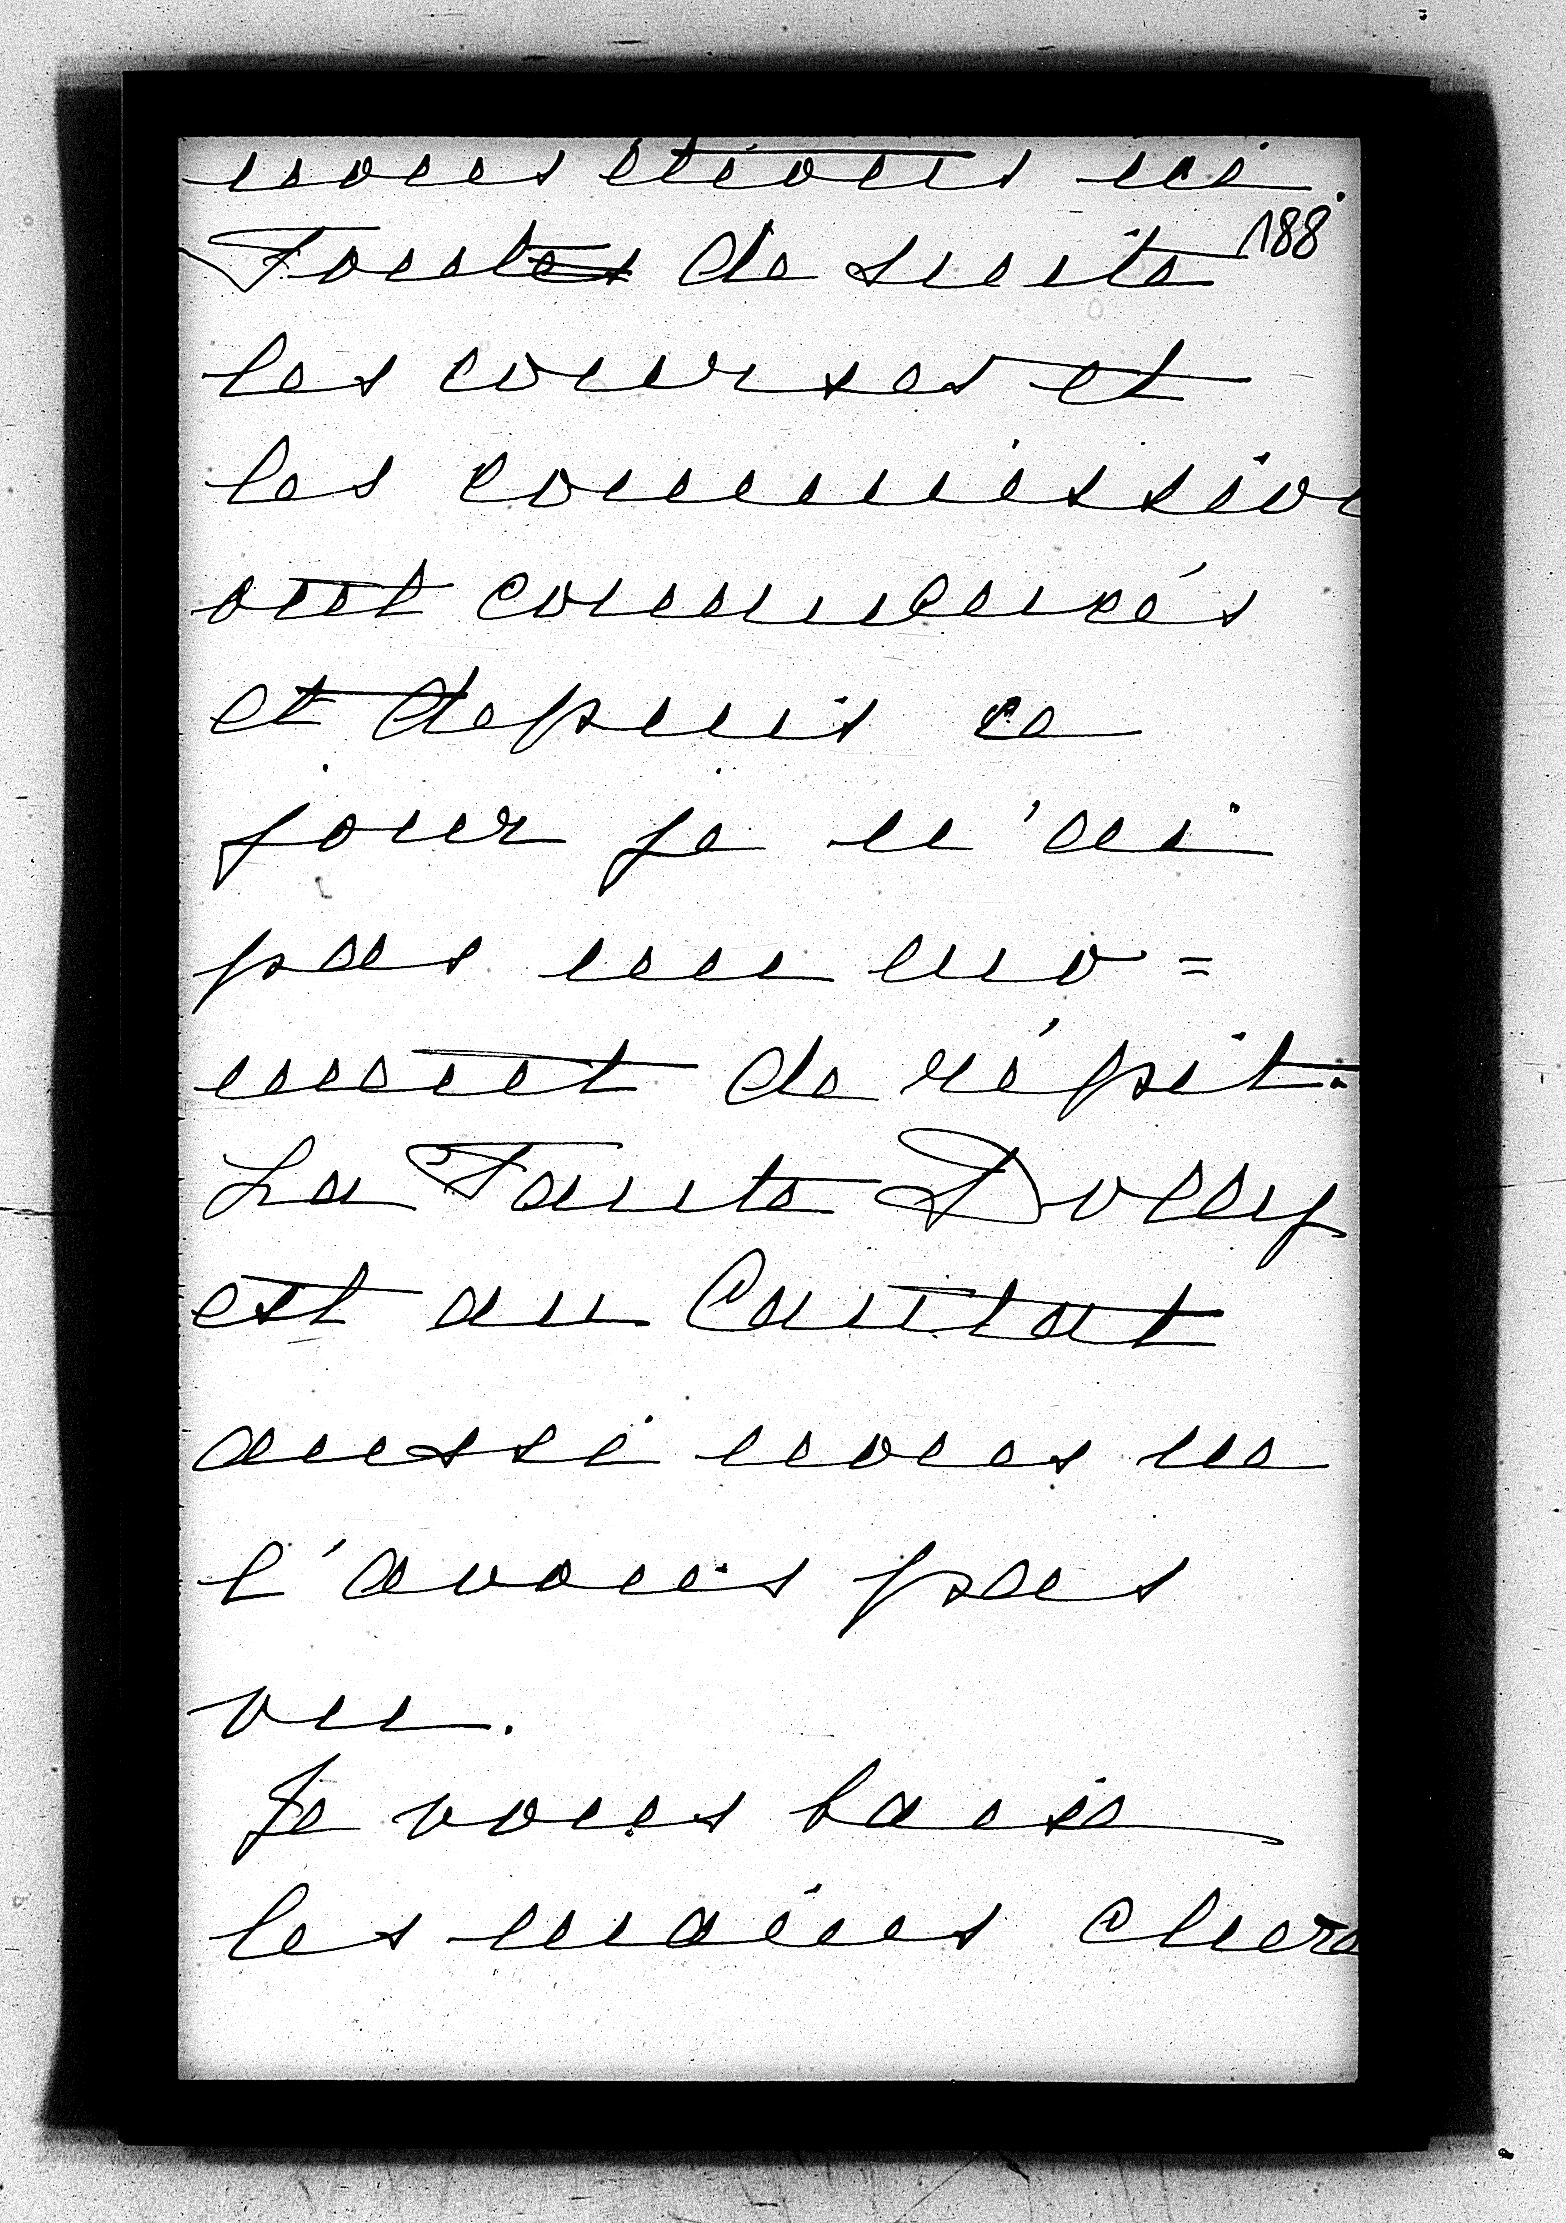 nous étions ici.
188
Toutes de suite
les courses et
les commission
ont commencés
et depuis ce
jour je n'ai
pas un mo=
ment de répit.
La Tante Dolly
est au Cantat
aussi nous ne
l'avons pas
vu.
Je vous baise
les mains chere